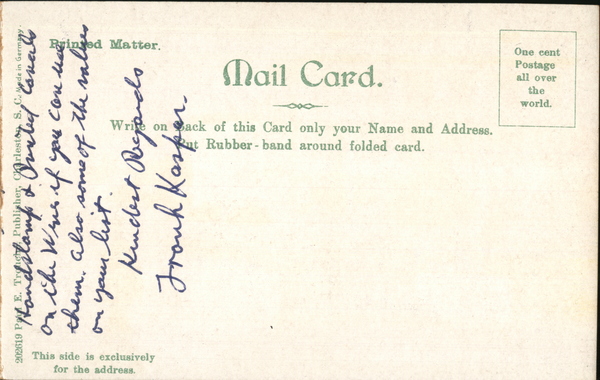 Printed Matter.
Mail Card.
One cent
Postage
all over
the
world.
Write on Back of this Card only your Name and Address.
Put Rubber-band around folded card.
This side is exclusively
for the address.
202619 Paul E. Trouche, Publisher, Charleston, S. C. Made in Germany.
Handstamp & Printed Cancels
on the Wires if you can use
them. also some of the values
on your list.
Kindest Regards
Frank Kasper